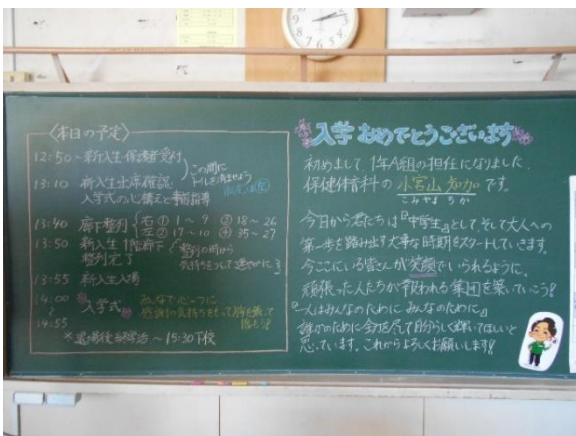 〈本日の予定〉
12:50～新入生・保護者受付
この間に
トイレを済ませよう
13:10 新入生出席確認
入学式の心構えと事前指導
13:40 廊下整列
右① 1～9 ③ 18～26
左② 17～10 ④ 35～27
13:50 新入生1階廊下
整列完了
整列の時から
気持ちをつくって速やかに!
13:55 新入生入場
14:00
～
14:55
入学式
みんなで心一つに
感謝の気持ちをもって胸を張って
臨もう!
※退場後 学活～15:30下校
入学おめでとうございます
初めまして 1年A組の担任になりました
保健体育科の 小宮山 知加 です。
こみやま ちか
今日から君たちは『中学生』として、そして大人への
第一歩を踏み出す大事な時期をスタートしていきます。
今ここにいる皆さんが笑顔でいられるように、
頑張った人たちが報われる集団を築いていこう!
『一人はみんなのために みんなのために』
誰かのために今を尽くして自分らしく輝いてほしいと
思っています。これからよろしくお願いします!